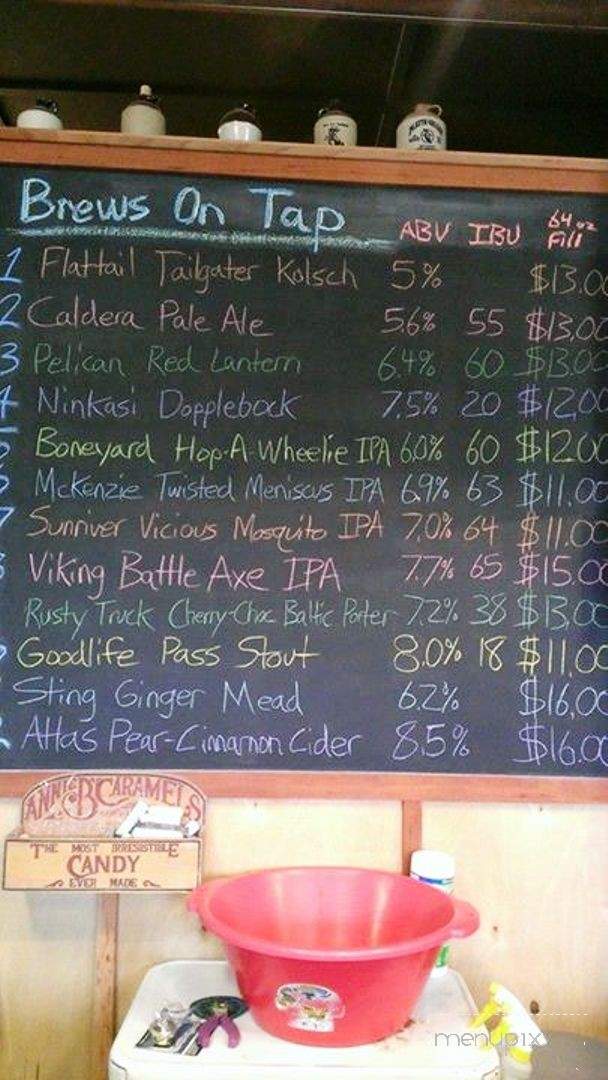 Brews On Tap ABV IBU 64 oz Fill
1 Flattail Tailgater Kolsch 5% $13.00
2 Caldera Pale Ale 5.6% 55 $13.00
3 Pelican Red Lantern 6.4% 60 $13.00
4 Ninkasi Dopplebock 7.5% 20 $12.00
5 Boneyard Hop-A-Wheelie IPA 6.0% 60 $12.00
6 McKenzie Twisted Meniscus IPA 6.9% 63 $11.00
7 Sunriver Vicious Mosquito IPA 7.0% 64 $11.00
8 Viking Battle Axe IPA 7.7% 65 $15.00
Rusty Truck Cherry-Choc Baltic Porter 7.2% 38 $13.00
Goodlife Pass Stout 8.0% 18 $11.00
Sting Ginger Mead 6.2% $16.00
2 Attas Pear-Cinnamon Cider 8.5% $16.00
ANNIE B'S CARAMELS
THE MOST IRRESISTIBLE
CANDY
EVER MADE
menupix